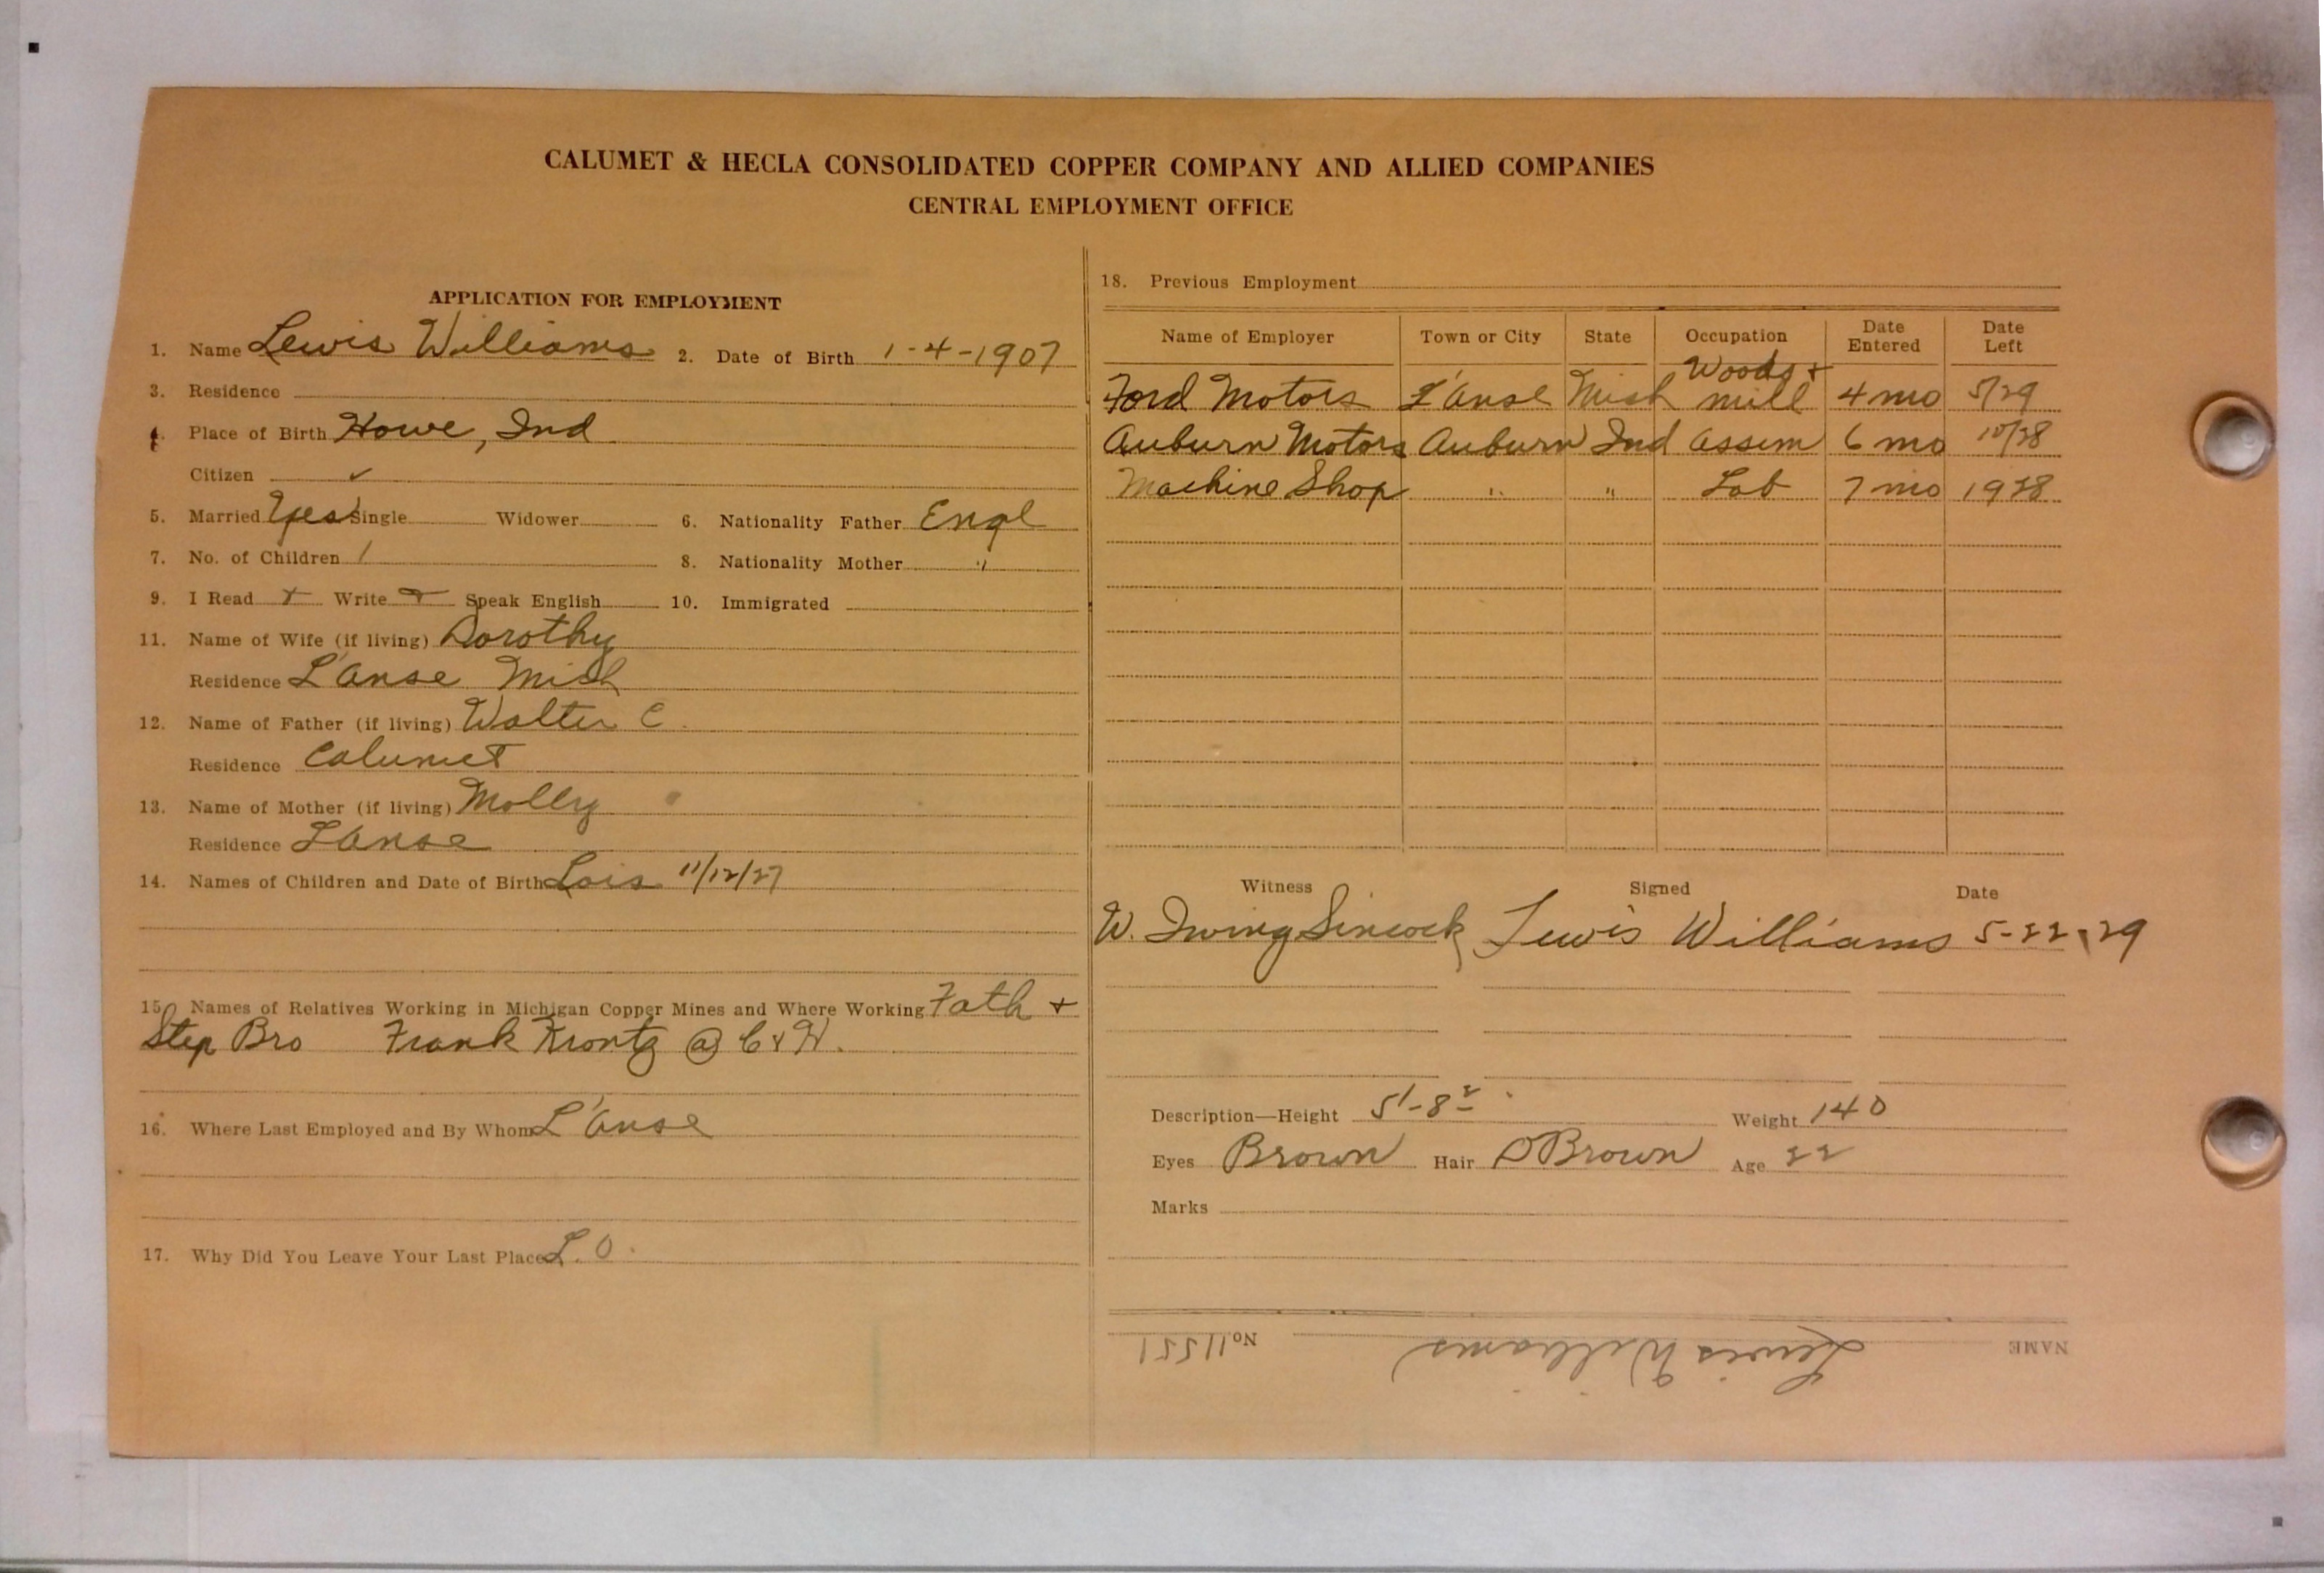 CALUMET & HECLA CONSOLIDATED COPPER COMPANY AND ALLIED COMPANIES
CENTRAL EMPLOYMENT OFFICE
APPLICATION FOR EMPLOYMENT
1. Name Lewis Williams 2. Date of Birth 1-4-1907
3. Residence
4. Place of Birth Howe, Ind
Citizen ✓
5. Married Yes Single Widower 6. Nationality Father Engl
7. No. of Children 1 8. Nationality Mother "
9. I Read Write Speak English 10. Immigrated
11. Name of Wife (if living) Dorothy
Residence L'Anse Mich
12. Name of Father (if living) Walter C.
Residence Calumet
13. Name of Mother (if living) Molly
Residence L'Anse
14. Names of Children and Date of Birth Lois 11/12/27
15. Names of Relatives Working in Michigan Copper Mines and Where Working Fath +
Step Bro Frank Krontz @ C & H.
16. Where Last Employed and By Whom L'Anse
17. Why Did You Leave Your Last Place L.O.
18. Previous Employment
Name of Employer Town or City State Occupation Date Entered Date Left
Woods +
Ford Motors L'Anse Mich mill 4 mo 5/29
Auburn Motors Auburn Ind Assem 6 mo 10/28
Machine Shop " " Lab 7 mo 1928
Witness Signed Date
W. Irving Sincock Lewis Williams 5-22-29
Description—Height 5'-8 Weight 140
Eyes Brown Hair D Brown Age 22
Marks
NAME Lewis Williams No 11551